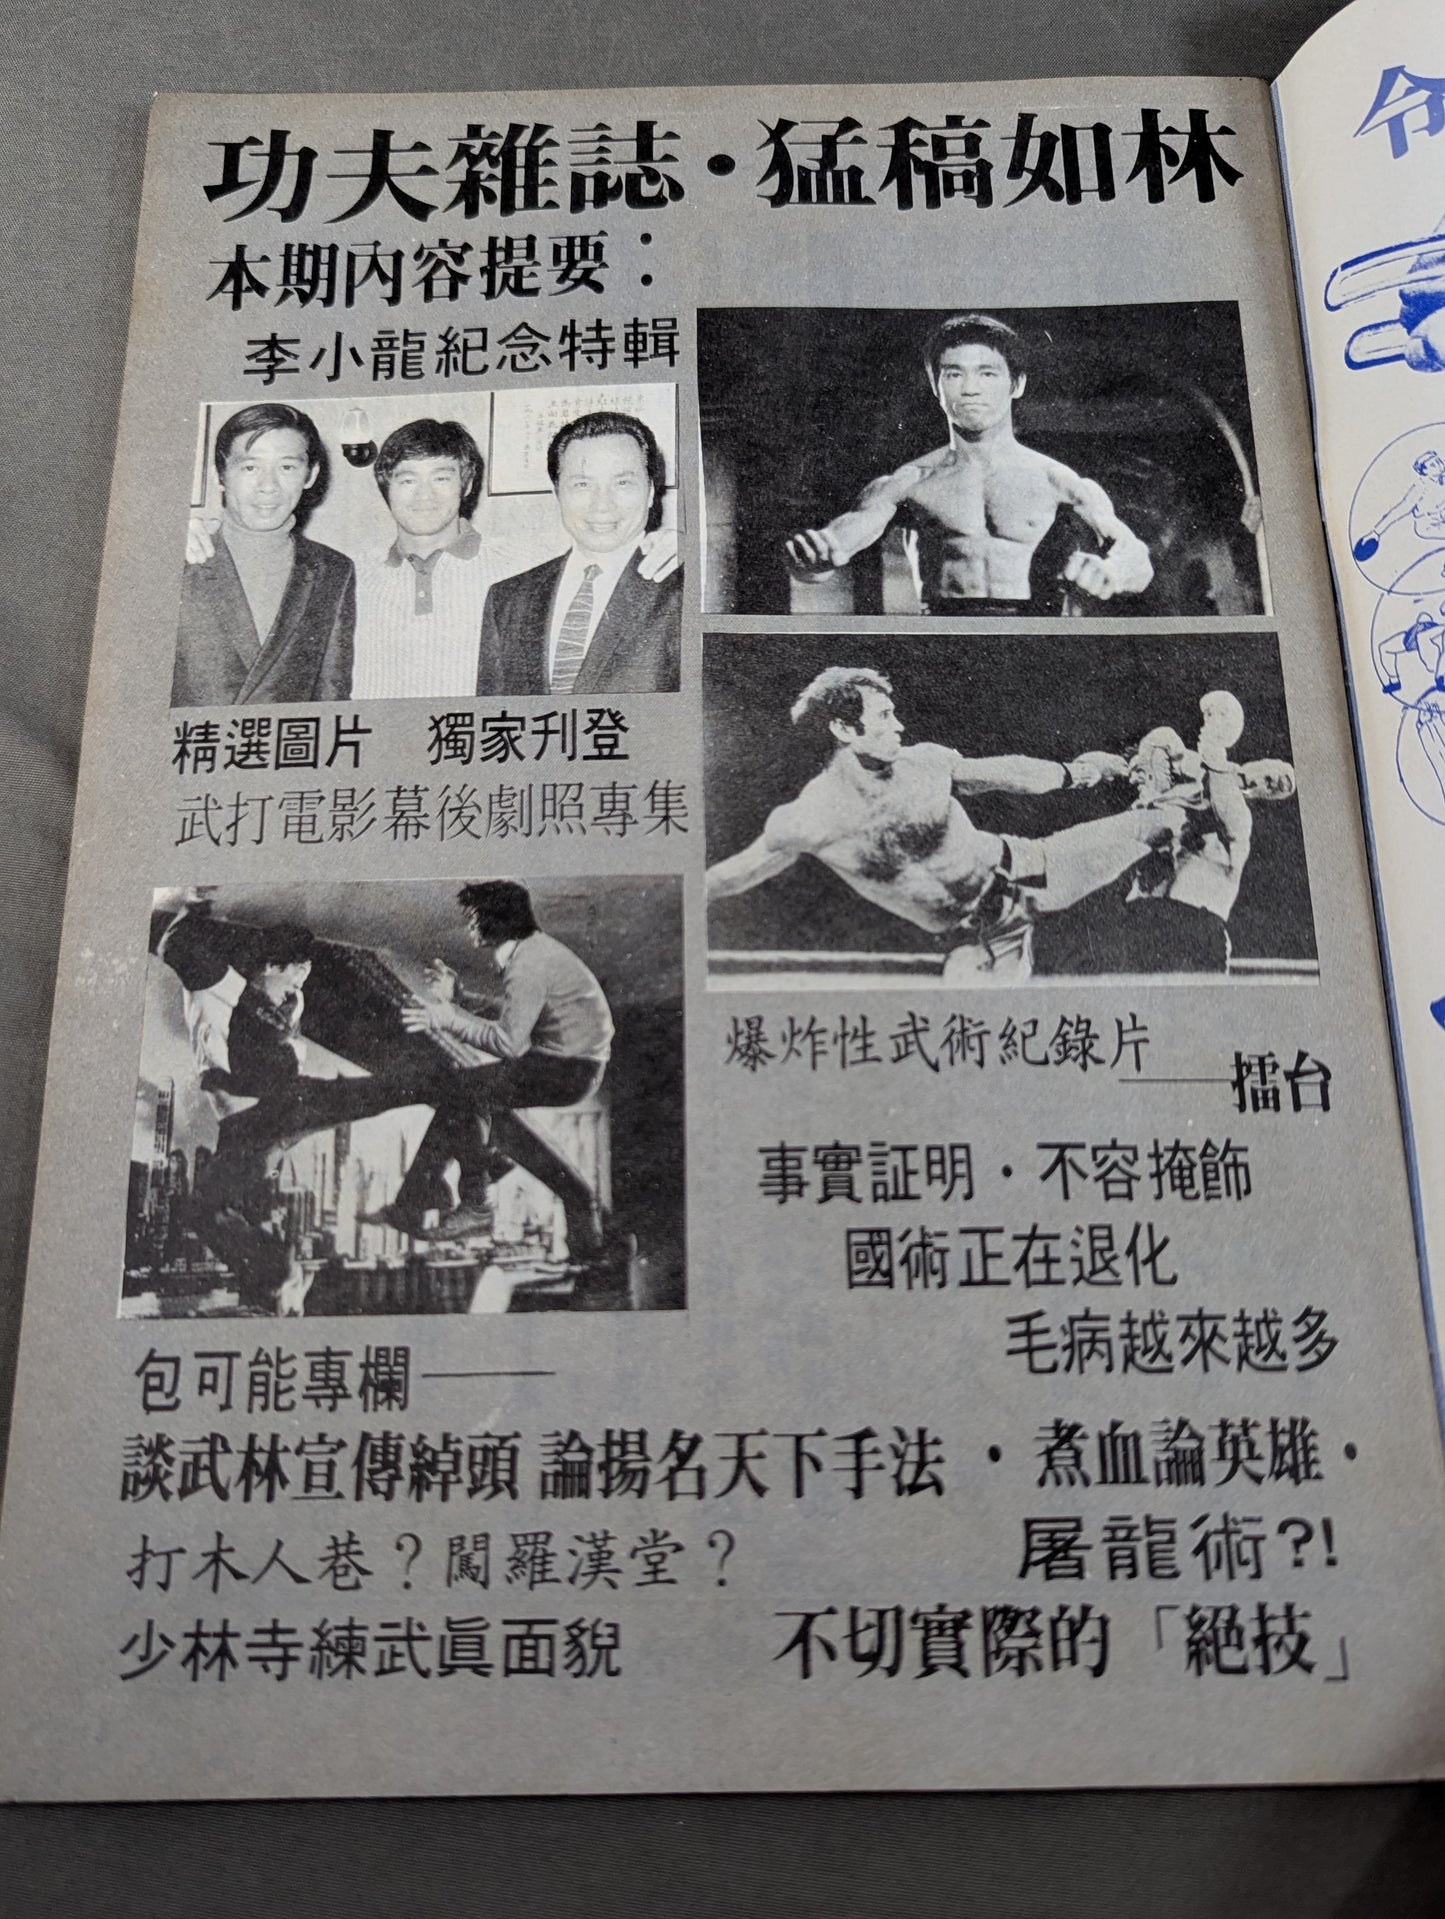 功夫雜誌·猛稿如林
本期內容提要：
李小龍紀念特輯
精選圖片　獨家刋登
武打電影幕後劇照專集
爆炸性武術紀錄片
——擂台
事實証明·不容掩飾
國術正在退化
毛病越來越多
包可能專欄——
談武林宣傳綽頭 論揚名天下手法·煮血論英雄·
打木人巷？闖羅漢堂？
屠龍術?!
少林寺練武眞面貌
不切實際的「絕技」
令